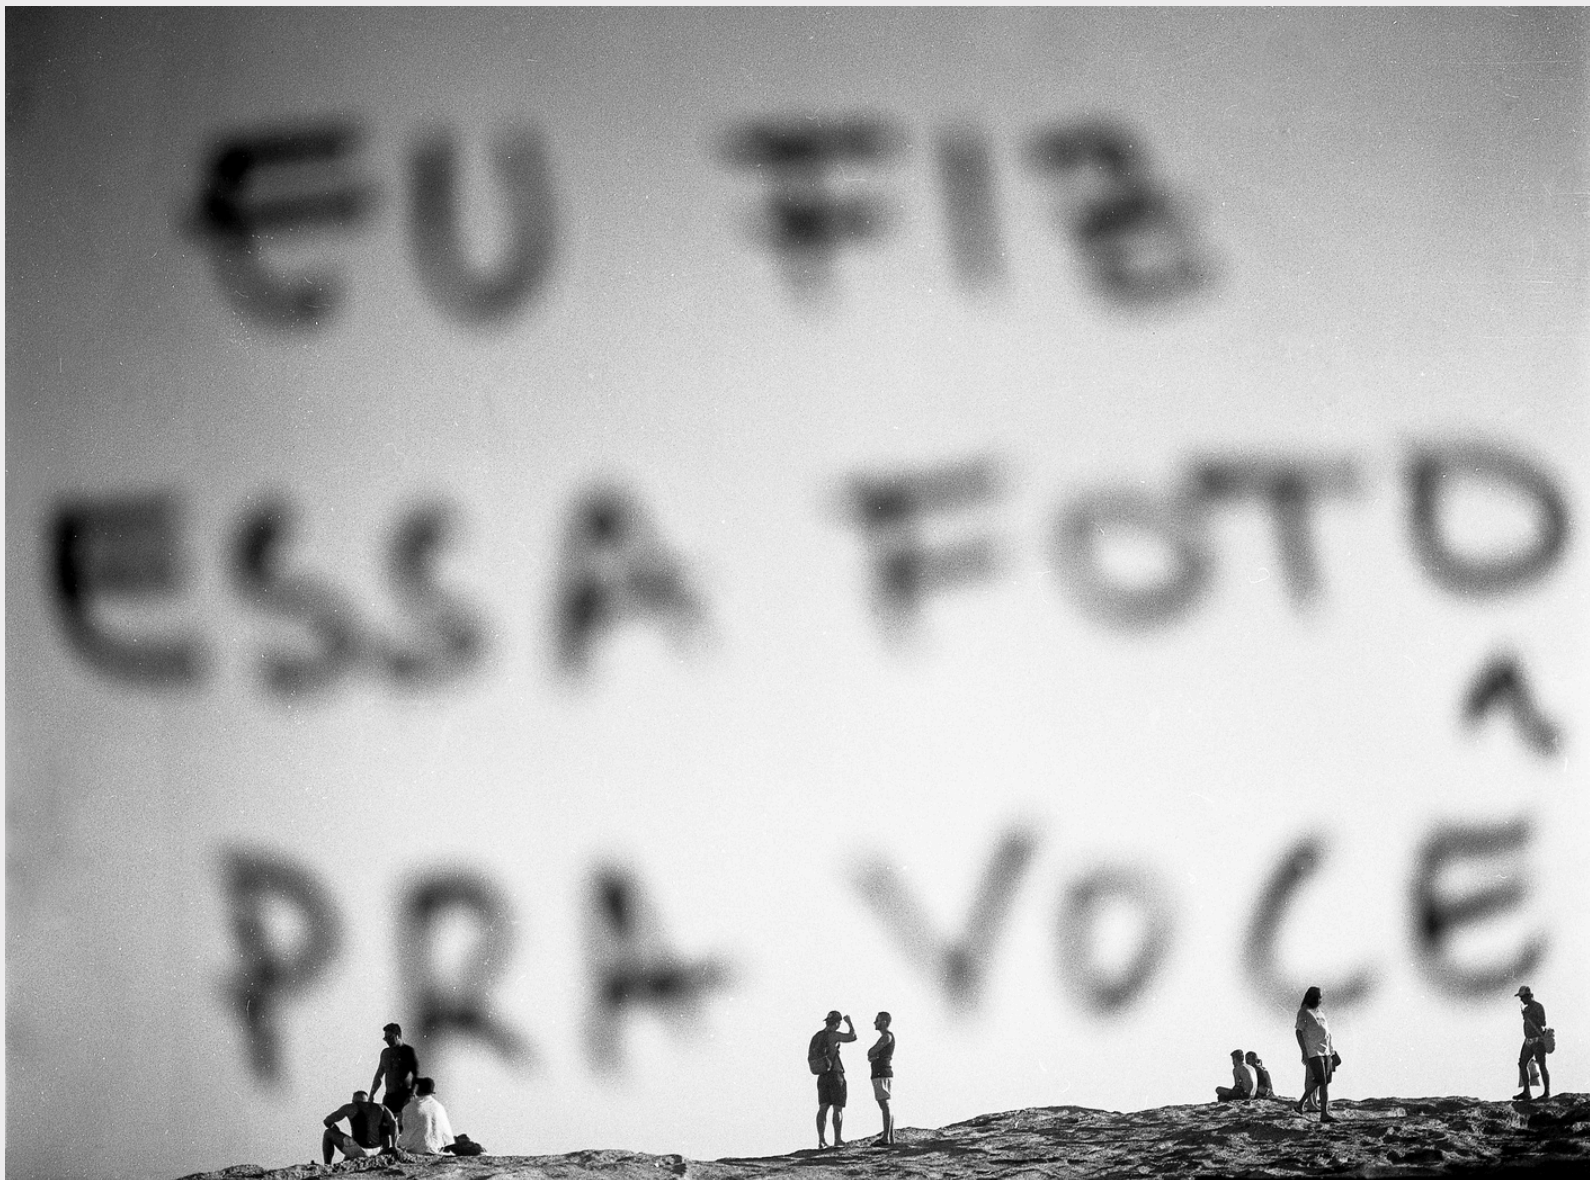 EU FIZ
ESSA FOTO
PRA VOCÊ